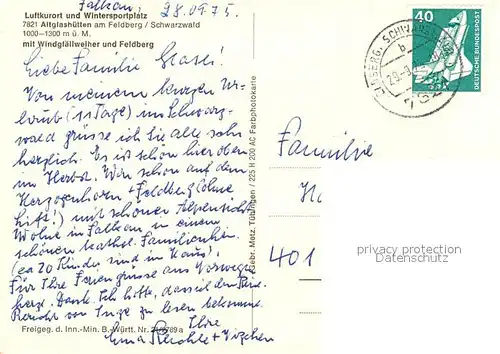 Falkau, 28.09.75.
Luftkurort und Wintersportplatz
7821 Altglashütten am Feldberg / Schwarzwald
1000–1300 m ü. M.
mit Windgfällweiher und Feldberg
Liebe Familie
Von meinem kurzen Ur-
laub (11 Tage) im Schwarz-
wald grüsse ich Sie alle sehr
herzlich. Es ist schön hier oben
im Herbst. War schon auf dem
Herzogenhorn + Feldberg (ohne
Lift!) mit schöner Alpensicht.
Wohne in Falkau in einem
schönen kathol. Familienheim
(ca 20 Kinder sind im Haus).
Für Ihre Feriengrüsse aus Norwegen
herzl. Dank. Ich hoffe, dass ich den
Bericht von zu lesen bekomme.
Ihre
Freigeg. d. Inn.-Min. B.-Württ. Nr.
Gebr. Metz, Tübingen / 225 N 200 AC Farbphotokarte
40
DEUTSCHE BUNDESPOST
b
Familie
401
privacy protection
Ansichtskarten.de